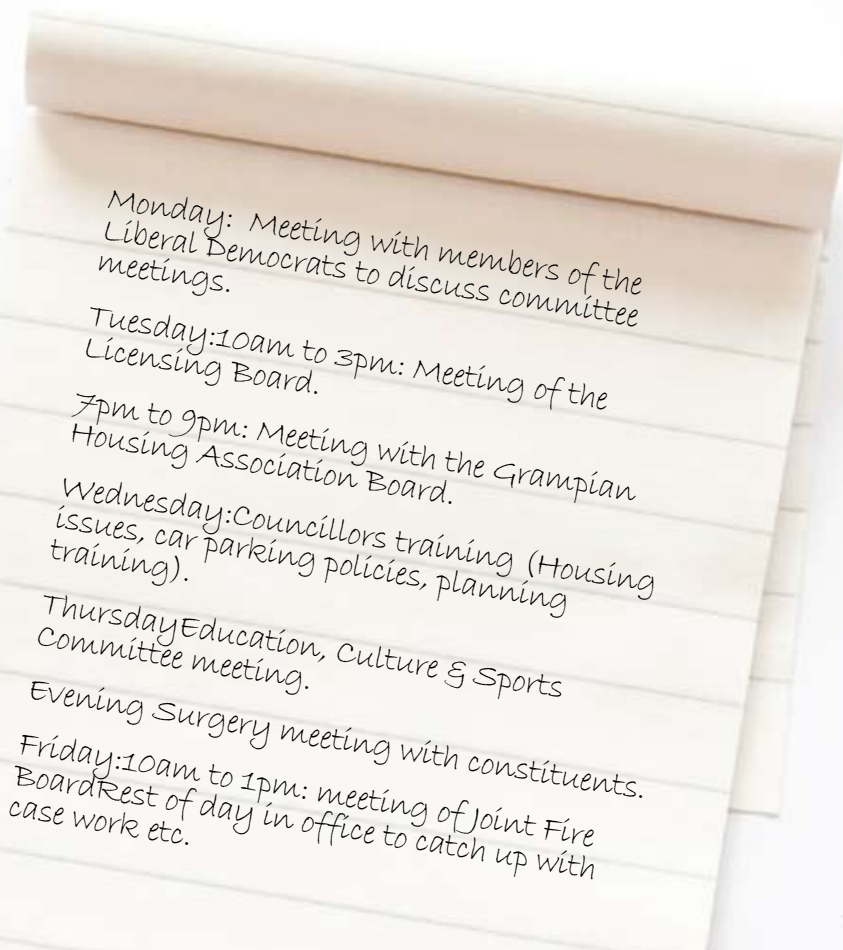 Monday:  Meeting with members of the
Liberal Democrats to discuss committee
meetings.
Tuesday:10am to 3pm: Meeting of the
Licensing Board.
7pm to 9pm: Meeting with the Grampian
Housing Association Board.
Wednesday:Councillors training (Housing
issues, car parking policies, planning
training).
ThursdayEducation, Culture & Sports
Committee meeting.
Evening Surgery meeting with constituents.
Friday:10am to 1pm: meeting of Joint Fire
BoardRest of day in office to catch up with
case work etc.